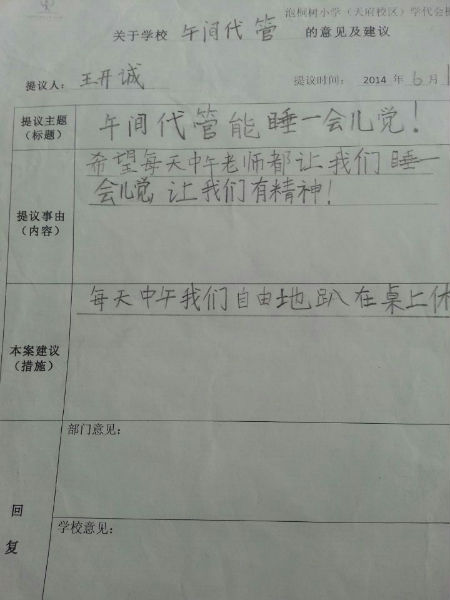 泡桐树小学（天府校区）学代会
关于学校 午间代管 的意见及建议
提议人： 王开诚 提议时间： 2014 年 6 月 1
提议主题
（标题）
午间代管能睡一会儿觉！
提议事由
（内容）
希望每天中午老师都让我们睡一
会儿觉，让我们有精神！
本案建议
（措施）
每天中午我们自由地趴在桌上休
回
复
部门意见：
学校意见：